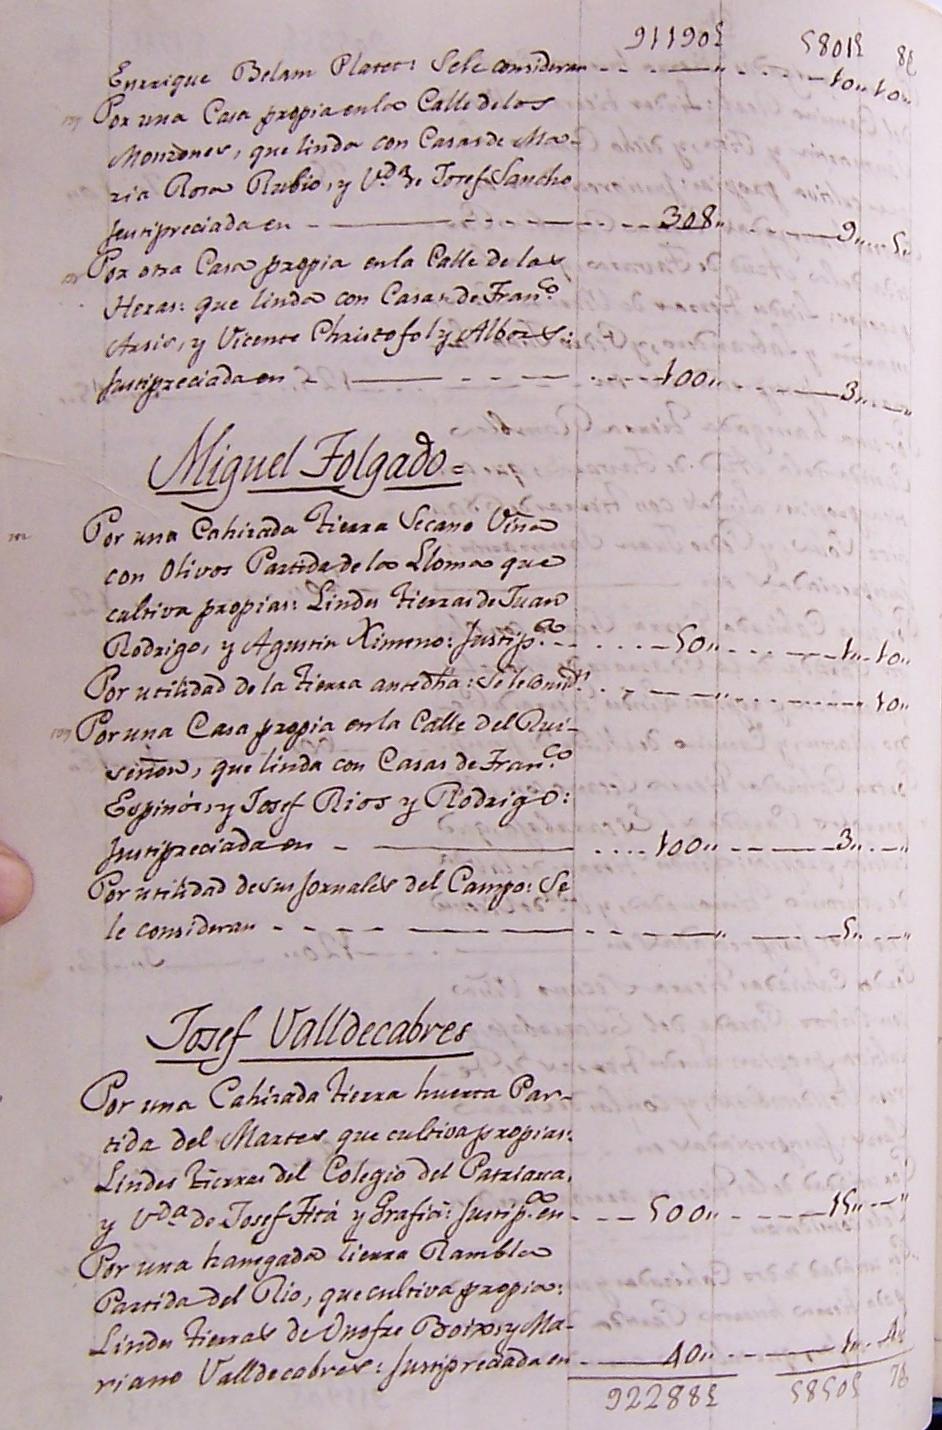 91190£ 5801£ 8
Enrrique Belam Platet: Sele consideran 10,, 10,,
Por una Casa propia en la Calle delos
Monzones, que linda con Casas de Ma-
ria Rosa Rubio, y Vda. de Josef Sancho
Justipreciada en 308,, 9,, 5,,
Por otra Casa propia en la Calle de las
Heras: que linda con Casas de Franco.
Asis, y Vicente Christofol y Albors:
Justipreciada en 100,, 3,, ,,
Miguel Folgado=
Por una Cahizada tierra Secano Viña
con Olivos Partida de la Lloma que
cultiva propias: Lindes tierras de Juan
Rodrigo, y Agustin Ximeno: Justipda. 50,, 1,, 10,,
Por utilidad de la tierra antedha: se le consideran ,, 10,,
Por una Casa propia en la Calle del Rui-
señor, que linda con Casas de Franco.
Espinós, y Josef Rios y Rodrigo:
Justipreciada en 100,, 3,, ,,
Por utilidad de sus Jornales del Campo: Se
le consideran ,, 5,, ,,
Josef Valldecabres
Por una Cahizada tierra huerta Par-
tida del Martes que cultiva propias:
Lindes tierras del Colegio del Patriarca,
y Vda de Josef Fitá y Grafiá: Justipda. en 500,, 15,, ,,
Por una hanegada tierra Rambla
Partida del Rio, que cultiva propia:
Lindes tierras de Onofre Boix, y Ma-
riano Valldecabres: Justipreciada en 40,, 1,, 4,,
92288£ 5850£